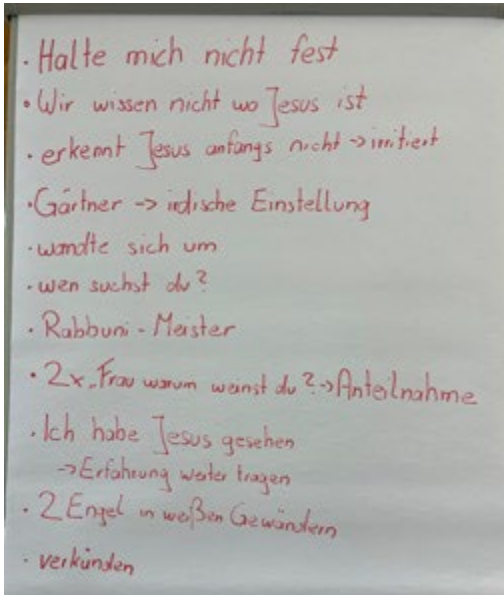 · Halte mich nicht fest
· Wir wissen nicht wo Jesus ist
· erkennt Jesus anfangs nicht -> irritiert
· Gärtner -> irdische Einstellung
· wandte sich um
· wen suchst du?
· Rabbuni - Meister
· 2x „Frau warum weinst du? -> Anteilnahme
· Ich habe Jesus gesehen
-> Erfahrung weiter tragen
· 2 Engel in weißen Gewändern
· verkünden